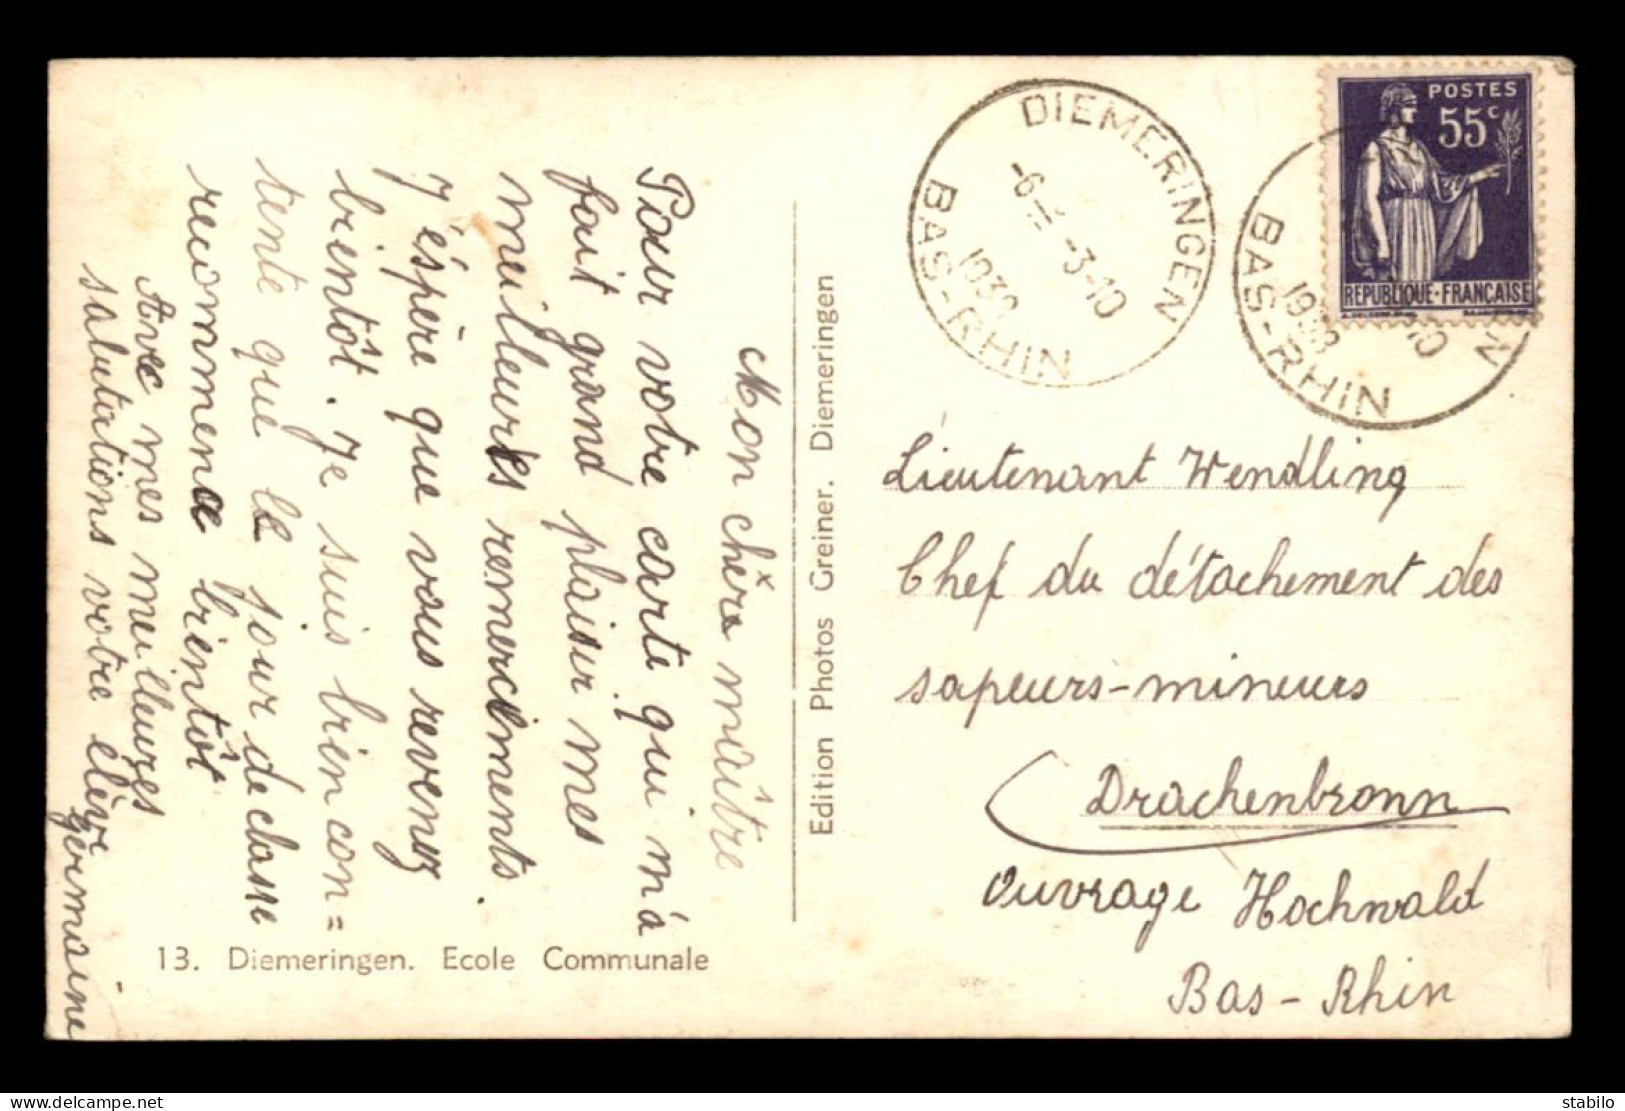 Mon chère maître
Pour votre carte qui m'a
fait grand plaisir mes
meilleurs remerciments.
J'éspère que vous revenez
bientôt. Je suis bien con=
tente que le jour de classe
recommence bientôt
Avec mes meilleures
salutations votre élève
germaine
13. Diemeringen. Ecole Communale
Edition Photos Greiner. Diemeringen
DIEMERINGEN
BAS-RHIN
-3-10
POSTES
55c
REPUBLIQUE-FRANCAISE
BAS-RHIN
Lieutenant Wendling
Chef du détachement des
sapeurs-mineurs
Drachenbronn
Ouvrage Hochwald
Bas-Rhin
www.delcampe.net
stabilo